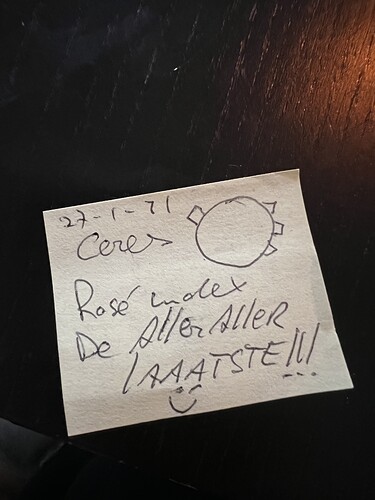 27-1-71
Ceres
Rosé index
De AllerAlleR
lAAATSTE!!!